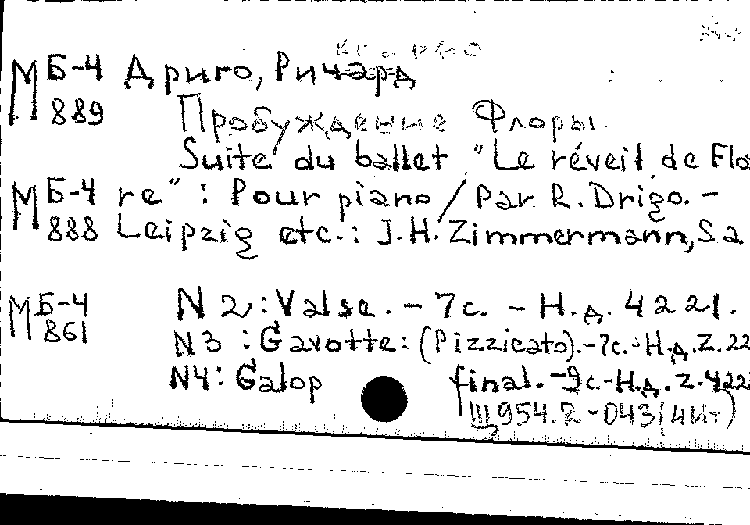 М Б-4 Дриго, Ричард
889 Пробуждение Флоры.
Suite du ballet "Le réveil de Flo
М Б-4 re" : Pour piano / Par R. Drigo. -
888 Leipzig etc.: J.H. Zimmermann, S.a
М Б-4 N 2 : Valse. - 7с. - Н.д. 4221.
861 N3 : Gavotte: (Pizzicato). - 7с. - Н.д. Z. 22
N4 : Galop final. - 9с. - Н.д. Z. 422
Щ954.2-043(4Ит)